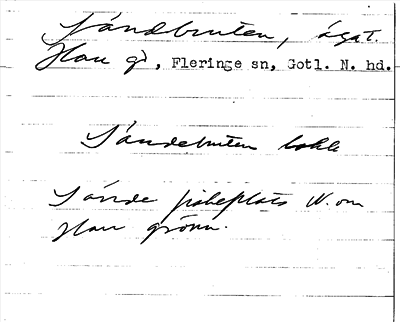 Sändbruten, ägat.
Hau gd, Fleringe sn, Gotl. N. hd.
Sändebruten
Sände fiskeplats N. om
Hau grönn.